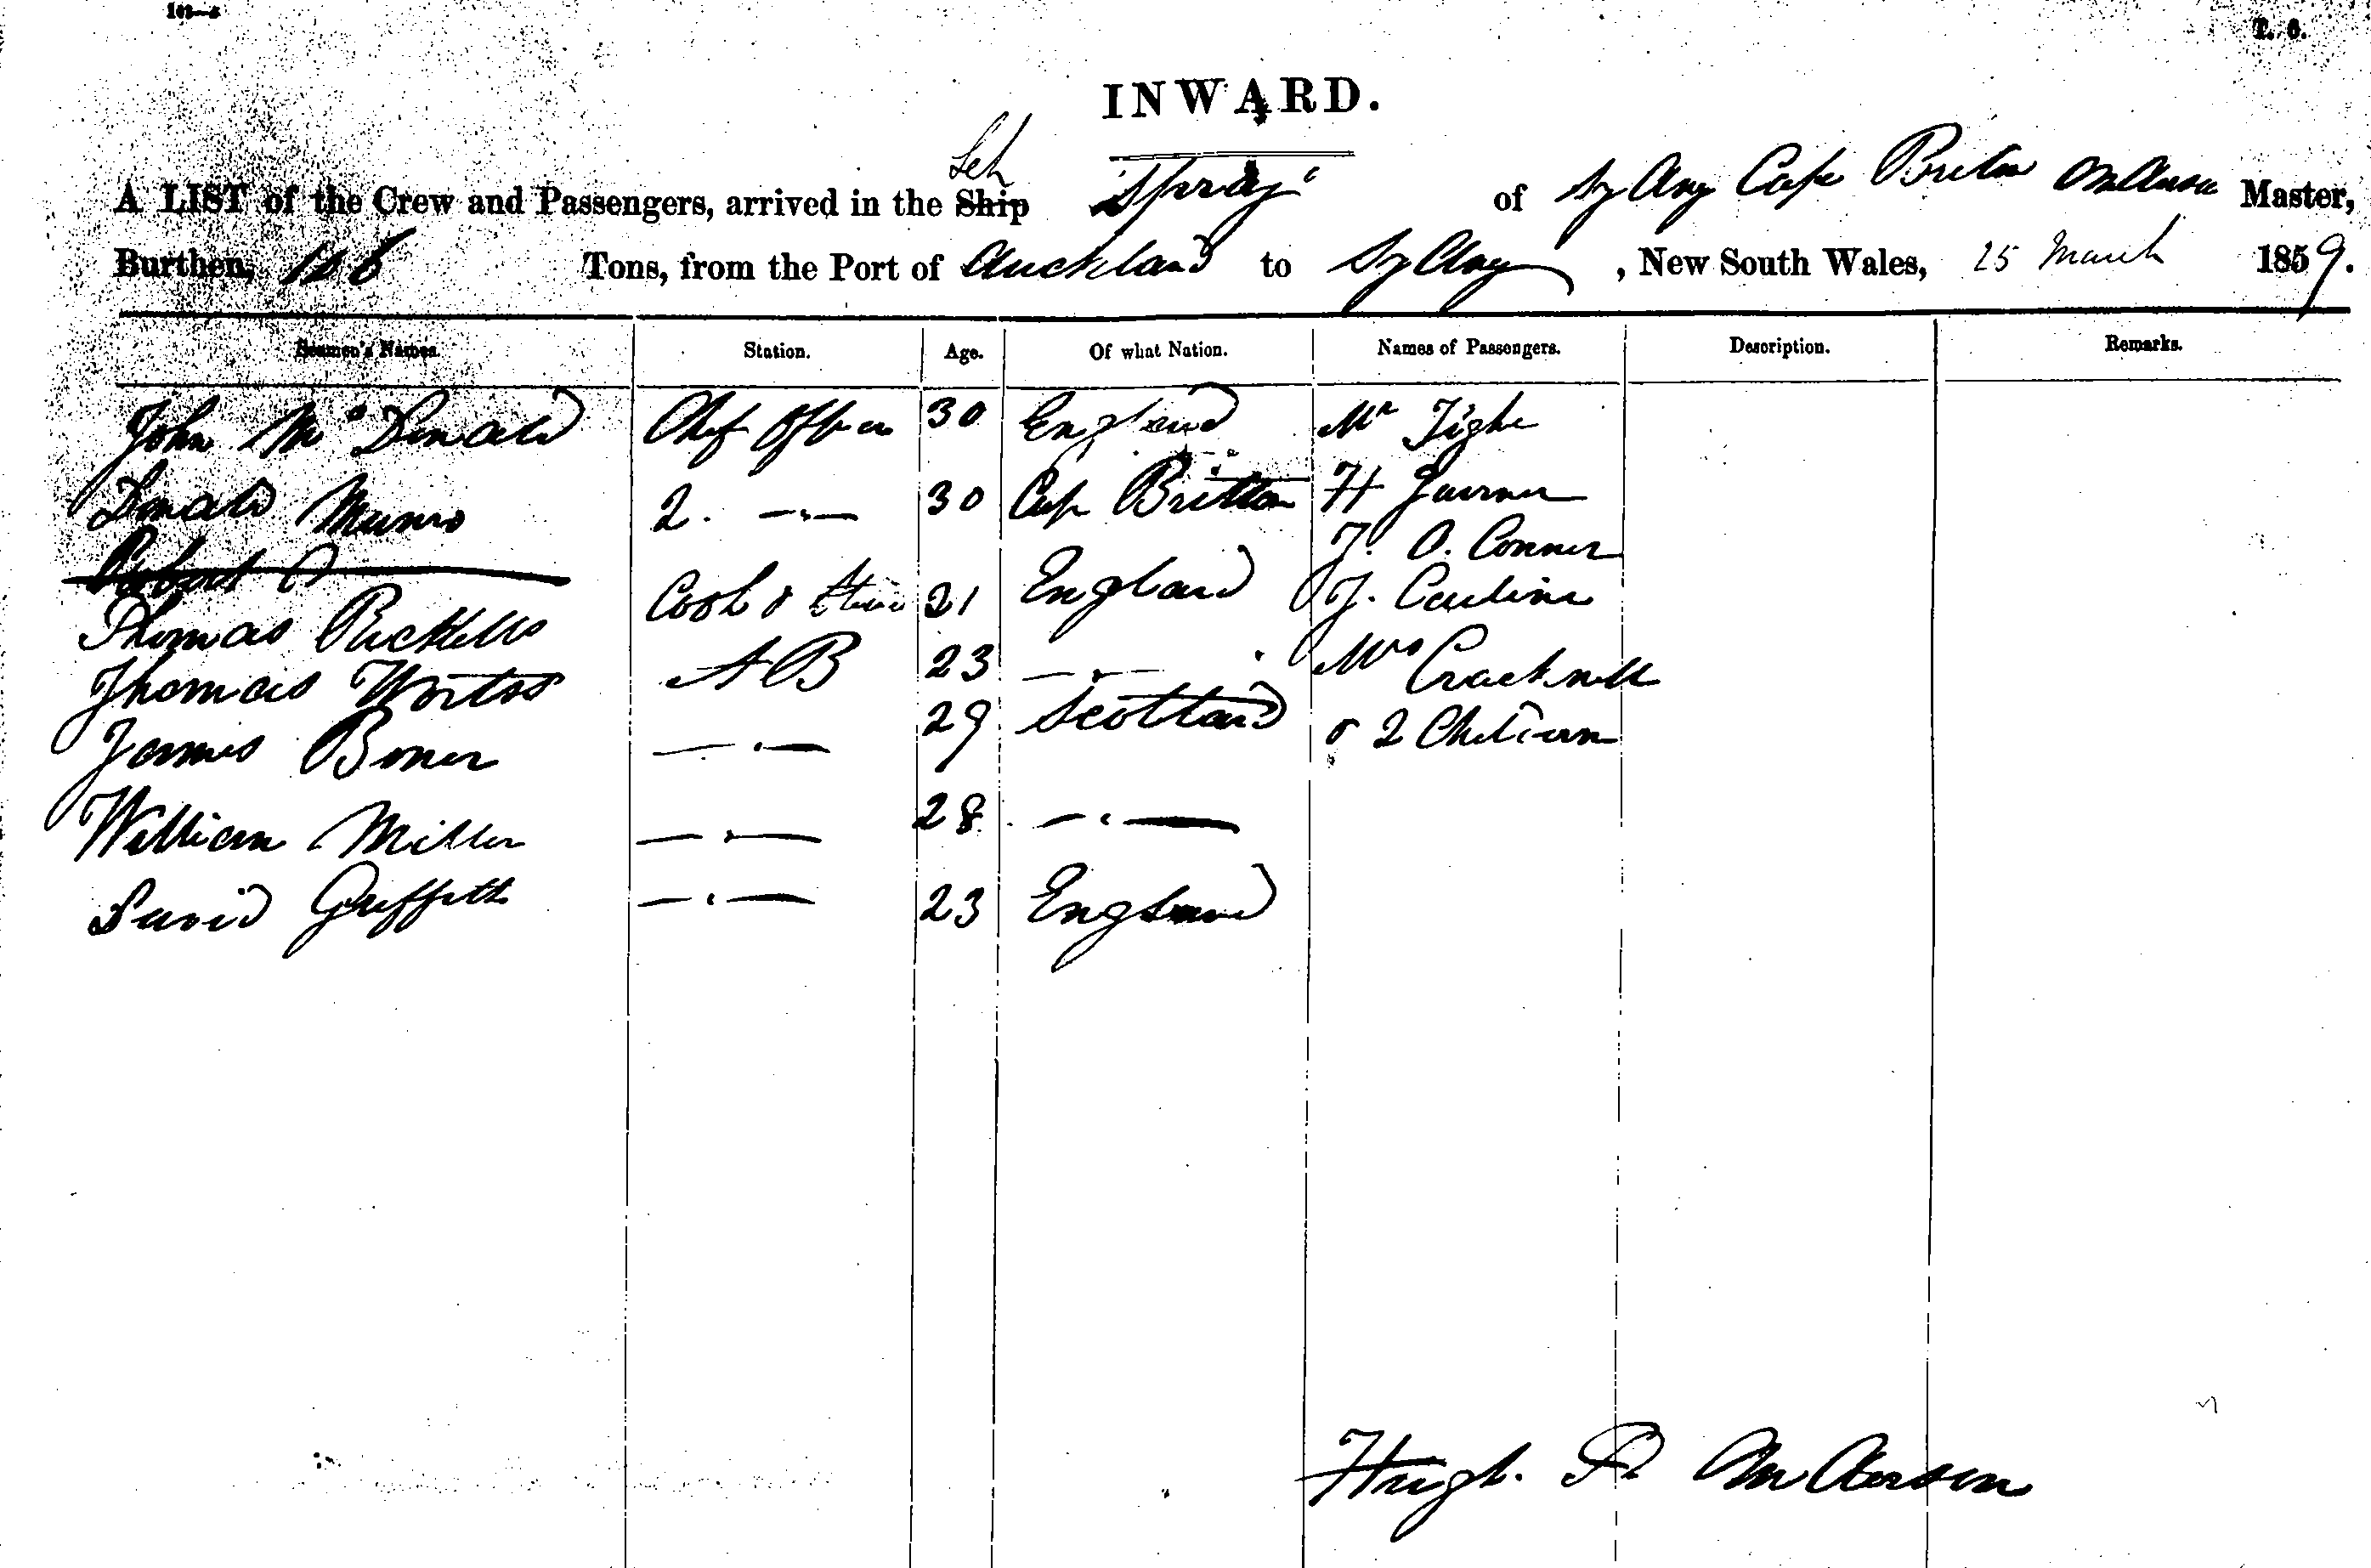 T. 6.
INWARD.
Sch
A LIST of the Crew and Passengers, arrived in the Ship "Spray" of Sydney Cape Breton Master,
Burthen, 106 Tons, from the Port of Auckland to Sydney, New South Wales, 25 March 1859.
Seamen's Names. Station. Age. Of what Nation. Names of Passengers. Description. Remarks.
John McDonald Chief Officer 30 England Mr Tighe
Donald Munro 2. —"— 30 Cape Britton H
J. O. Conner
Robert
Thomas Ricketts Cook & 21 England J.
Thomas A B 23 —"— Mrs Cracknell
James Boner —"— 29 Scotland & 2 Children
William Miller —"— 28 —"—
David Griffith —"— 23 England
Hugh